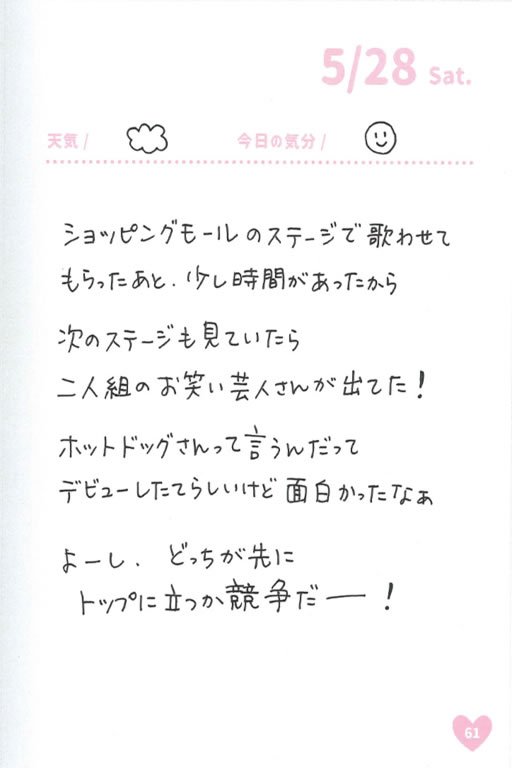 5/28 Sat.
天気/ 今日の気分/
ショッピングモールのステージで歌わせて
もらったあと、少し時間があったから
次のステージも見ていたら
二人組のお笑い芸人さんが出てた!
ホットドッグさんって言うんだって
デビューしたてらしいけど面白かったなぁ
よーし、どっちが先に
トップに立つか競争だー!
61